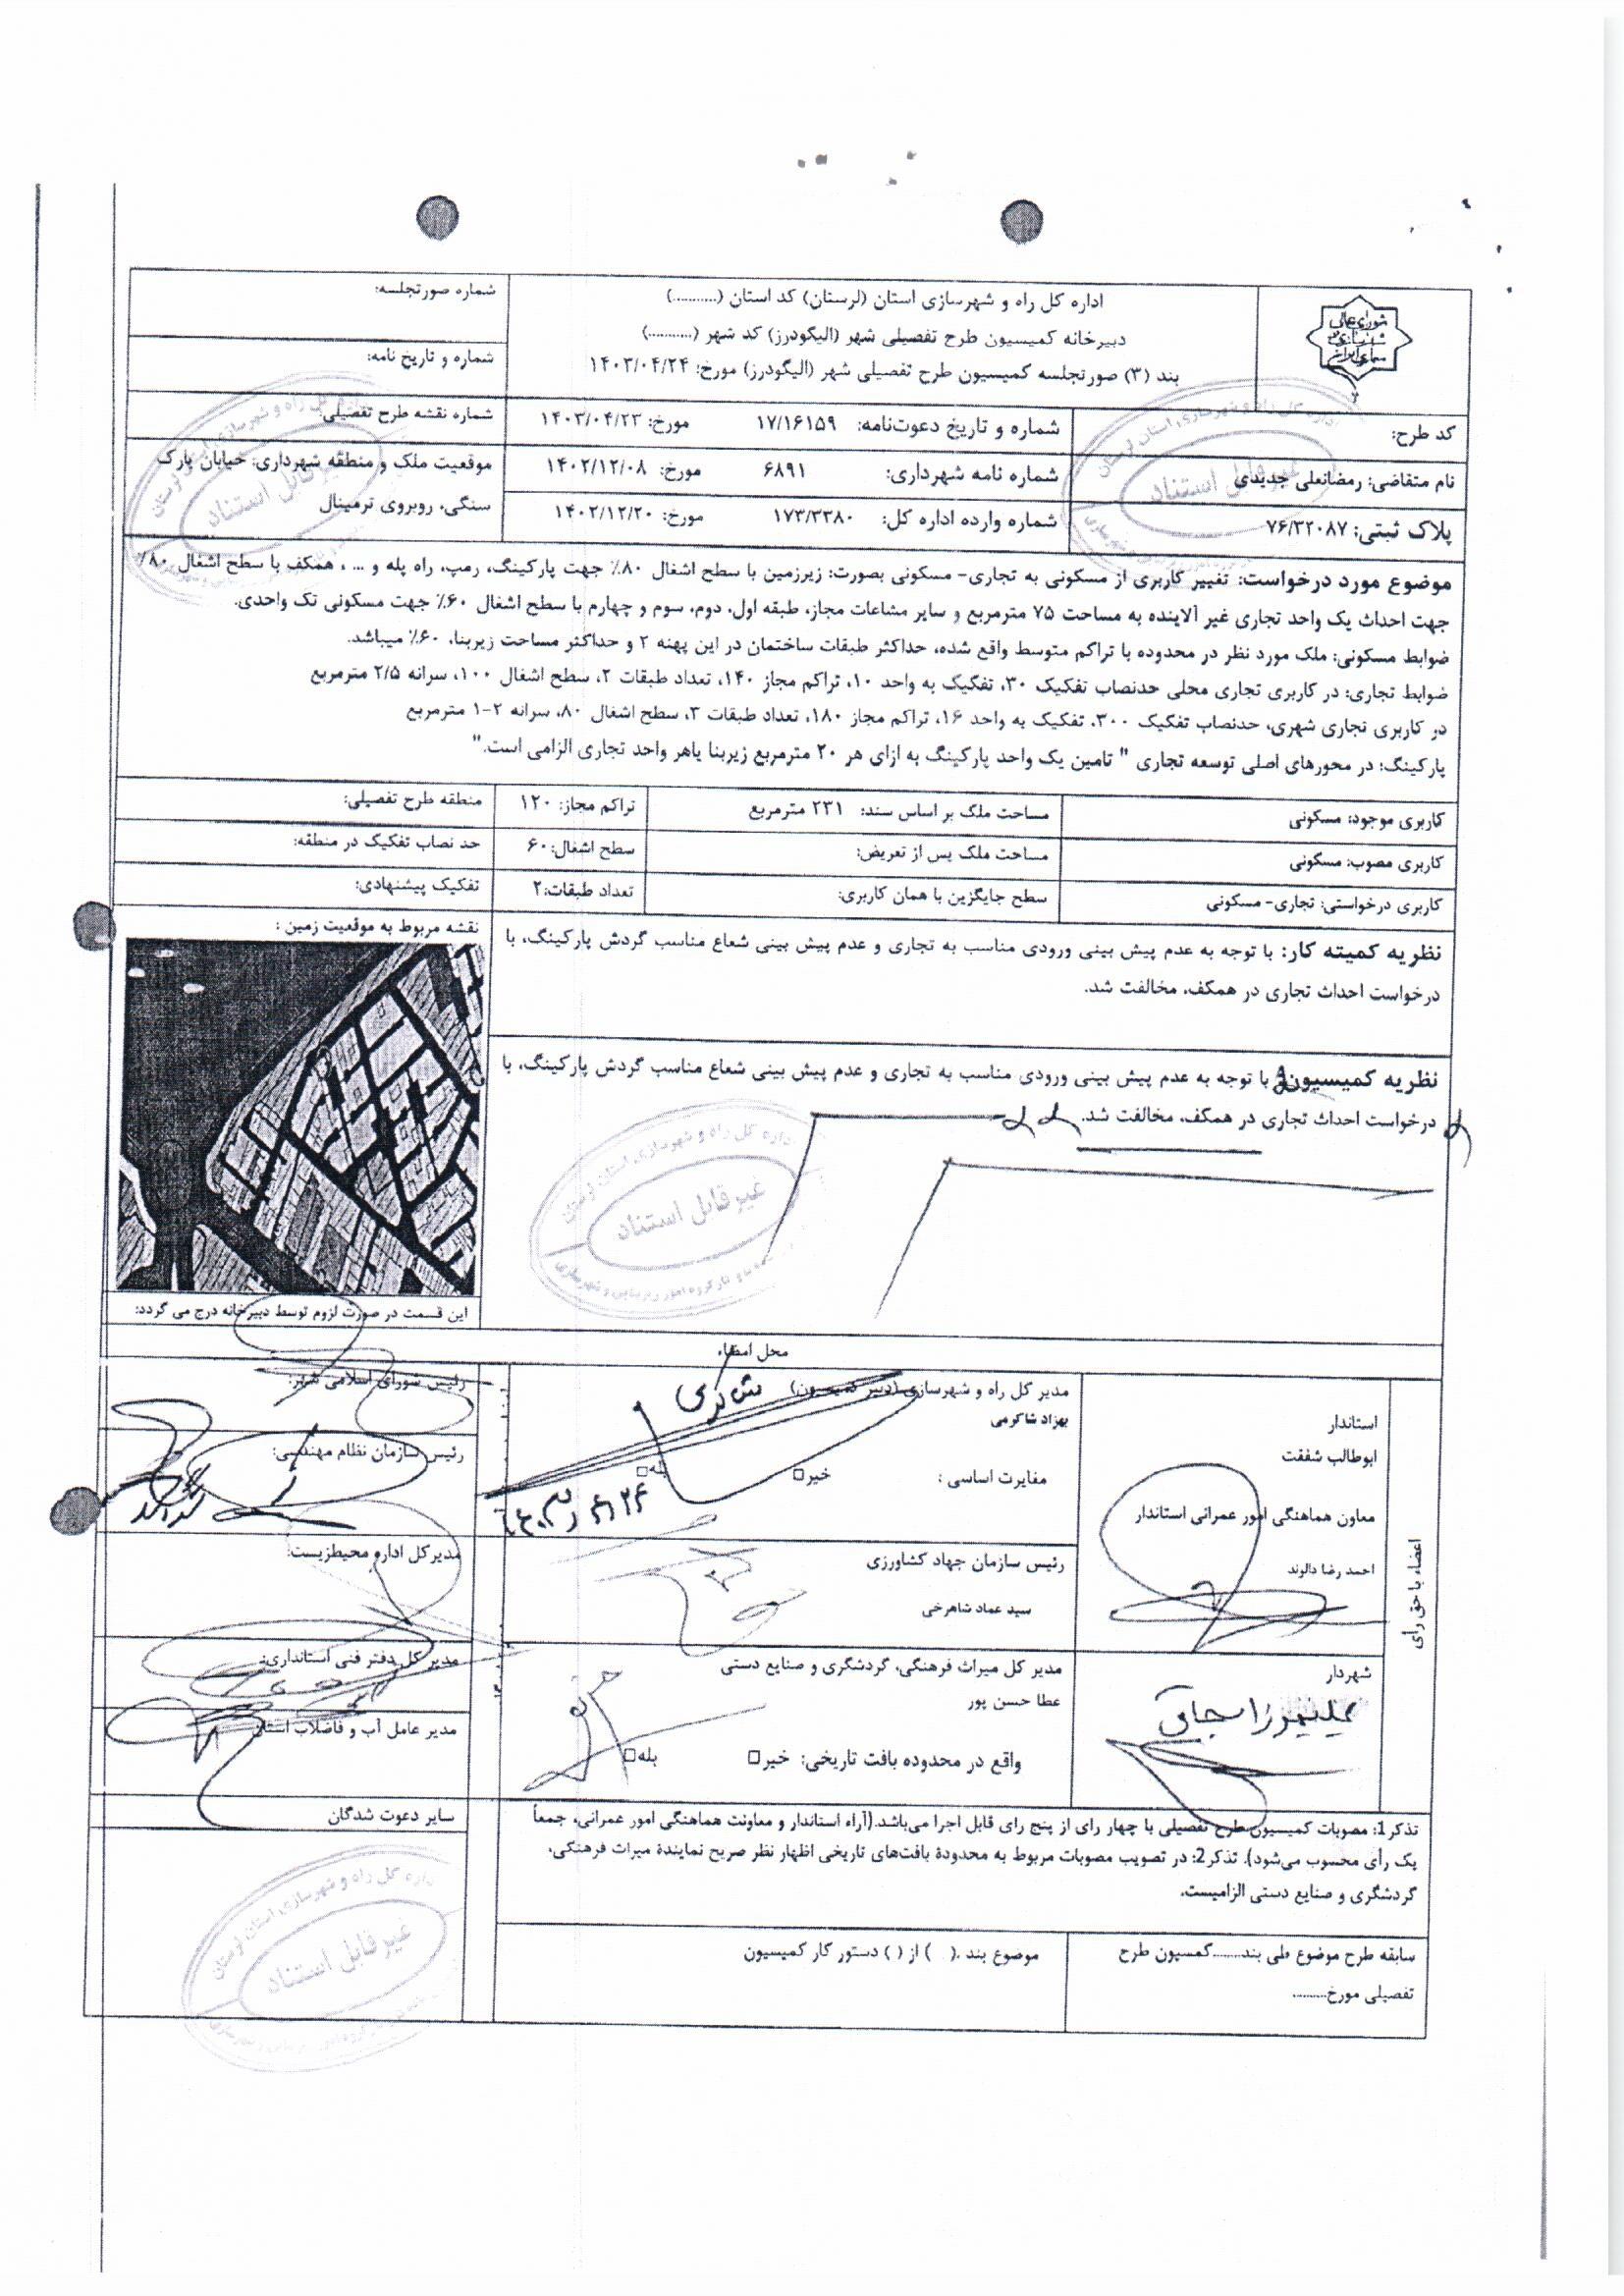 شورای عالی
شهرسازی و
معماری ایران
اداره کل راه و شهرسازی استان (لرستان) کد استان (..........)
دبیرخانه کمیسیون طرح تفصیلی شهر (الیگودرز) کد شهر (..........)
بند (۳) صورتجلسه کمیسیون طرح تفصیلی شهر (الیگودرز) مورخ: ۱۴۰۳/۰۴/۲۴
شماره صورتجلسه:
شماره و تاریخ نامه:
کد طرح:
شماره و تاریخ دعوت‌نامه: ۱۷/۱۶۱۵۹ مورخ: ۱۴۰۳/۰۴/۲۳
شماره نقشه طرح تفصیلی:
نام متقاضی: رمضانعلی جدیدی
شماره نامه شهرداری: ۶۸۹۱ مورخ: ۱۴۰۲/۱۲/۰۸
موقعیت ملک و منطقه شهرداری: خیابان پارک
سنگی، روبروی ترمینال
پلاک ثبتی: ۷۶/۳۲۰۸۷
شماره وارده اداره کل: ۱۷۳/۳۳۸۰ مورخ: ۱۴۰۲/۱۲/۲۰
موضوع مورد درخواست: تغییر کاربری از مسکونی به تجاری- مسکونی بصورت: زیرزمین با سطح اشغال ۸۰٪ جهت پارکینگ، رمپ، راه پله و ... ، همکف با سطح اشغال ۸۰٪
جهت احداث یک واحد تجاری غیر آلاینده به مساحت ۷۵ مترمربع و سایر مشاعات مجاز، طبقه اول، دوم، سوم و چهارم با سطح اشغال ۶۰٪ جهت مسکونی تک واحدی.
ضوابط مسکونی: ملک مورد نظر در محدوده با تراکم متوسط واقع شده، حداکثر طبقات ساختمان در این پهنه ۲ و حداکثر مساحت زیربنا، ۶۰٪ میباشد.
ضوابط تجاری: در کاربری تجاری محلی حدنصاب تفکیک ۳۰، تفکیک به واحد ۱۰، تراکم مجاز ۱۴۰، تعداد طبقات ۲، سطح اشغال ۱۰۰، سرانه ۲/۵ مترمربع
در کاربری تجاری شهری، حدنصاب تفکیک ۳۰۰، تفکیک به واحد ۱۶، تراکم مجاز ۱۸۰، تعداد طبقات ۳، سطح اشغال ۸۰، سرانه ۲-۱ مترمربع
پارکینگ: در محورهای اصلی توسعه تجاری " تامین یک واحد پارکینگ به ازای هر ۲۰ مترمربع زیربنا یاهر واحد تجاری الزامی است."
کاربری موجود: مسکونی
مساحت ملک بر اساس سند: ۲۳۱ مترمربع
تراکم مجاز: ۱۲۰
منطقه طرح تفصیلی:
کاربری مصوب: مسکونی
مساحت ملک پس از تعریض:
سطح اشغال: ۶۰
حد نصاب تفکیک در منطقه:
کاربری درخواستی: تجاری- مسکونی
سطح جایگزین با همان کاربری:
تعداد طبقات: ۲
تفکیک پیشنهادی:
نظریه کمیته کار: با توجه به عدم پیش بینی ورودی مناسب به تجاری و عدم پیش بینی شعاع مناسب گردش پارکینگ، با
درخواست احداث تجاری در همکف، مخالفت شد.
نقشه مربوط به موقعیت زمین :
نظریه کمیسیون: با توجه به عدم پیش بینی ورودی مناسب به تجاری و عدم پیش بینی شعاع مناسب گردش پارکینگ، با
درخواست احداث تجاری در همکف، مخالفت شد.
اداره کل راه و شهرسازی استان لرستان
غیر قابل استناد
این قسمت در صورت لزوم توسط دبیرخانه درج می گردد:
محل امضاء
اعضاء با حق رأی
استاندار
ابوطالب شفقت
معاون هماهنگی امور عمرانی استاندار
احمد رضا دالوند
مدیر کل راه و شهرسازی (دبیر کمیسیون)
بهزاد شاکرمی
مغایرت اساسی : خیر□ بله□
۱۴۰۳/۴/۲۴
رئیس شورای اسلامی شهر:
رئیس سازمان نظام مهندسی:
رئیس سازمان جهاد کشاورزی
سید عماد شاهرخی
مدیرکل اداره محیط‌زیست:
شهردار
مدیر کل میراث فرهنگی، گردشگری و صنایع دستی
عطا حسن پور
واقع در محدوده بافت تاریخی: خیر□ بله□
مدیر کل دفتر فنی استانداری:
مدیر عامل آب و فاضلاب استان
سایر دعوت شدگان
تذکر1: مصوبات کمیسیون طرح تفصیلی با چهار رای از پنج رای قابل اجرا می‌باشد.(آراء استاندار و معاونت هماهنگی امور عمرانی، جمعاً
یک رأی محسوب می‌شود). تذکر2: در تصویب مصوبات مربوط به محدودهٔ بافت‌های تاریخی اظهار نظر صریح نمایندهٔ میراث فرهنگی،
گردشگری و صنایع دستی الزامیست.
سابقه طرح موضوع طی بند........کمسیون طرح
تفصیلی مورخ..........
موضوع بند .( ) از ( ) دستور کار کمیسیون
غیر قابل استناد